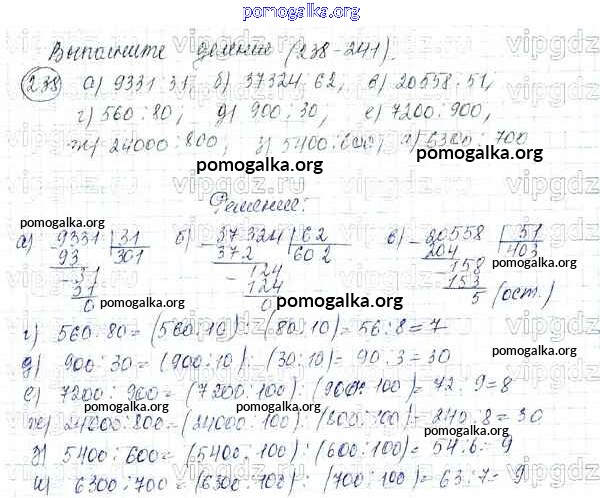 pomogalka.org
Выполните деление (238-241).
238 а) 9331:31, б) 37324:62, в) 20558:51,
г) 560:80, д) 900:30, е) 7200:900,
ж) 24000:800, з) 5400:600, и) 6300:700
pomogalka.org pomogalka.org
Решение:
pomogalka.org pomogalka.org pomogalka.org
а) 9331 31 б) 37324 62 в) 20558 51
93 301 372 602 204 403
31 124 158
31 124 153
0 0 5 (ост.)
pomogalka.org pomogalka.org
г) 560:80=(560:10):(80:10)=56:8=7
д) 900:30=(900:10):(30:10)=90:3=30
pomogalka.org
е) 7200:900=(7200:100):(900:100)=72:9=8
pomogalka.org pomogalka.org
ж) 24000:800=(24000:100):(800:100)=240:8=30
pomogalka.org
з) 5400:600=(5400:100):(600:100)=54:6=9
и) 6300:700=(6300:100):(700:100)=63:7=9
pomogalka.org pomogalka.org